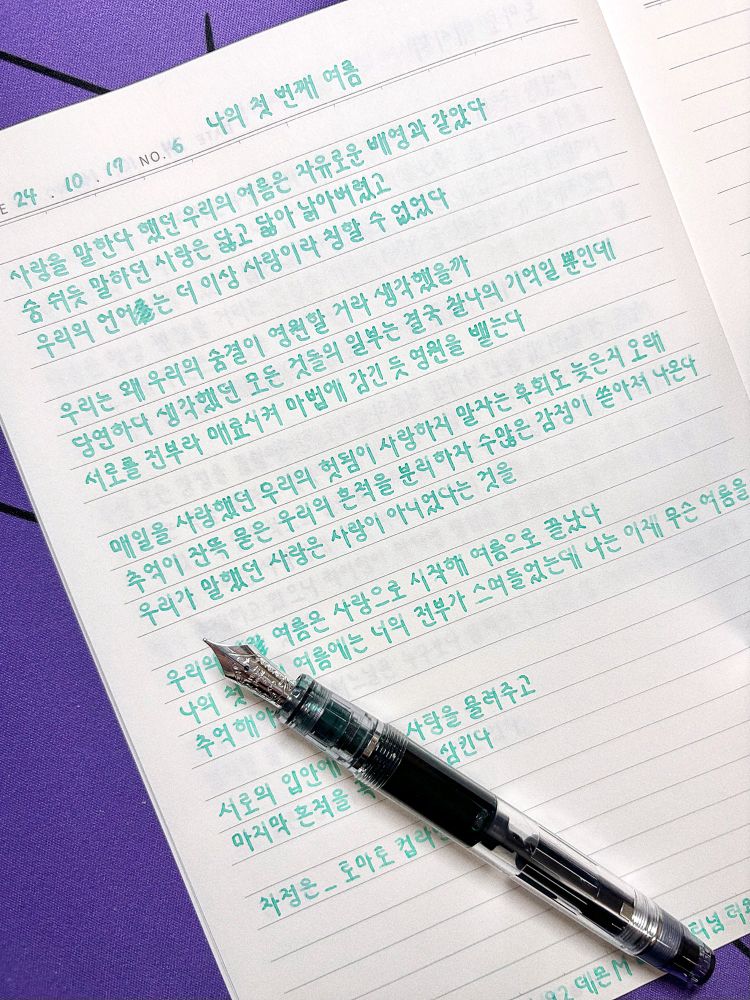 나의 첫 번째 여름
E 24 . 10 . 17 NO. 6
사랑을 말한다 했던 우리의 여름은 자유로운 배영과 같았다
숨 쉬듯 말하던 사랑은 닳고 닳아 낡아버렸고
우리의 언어는 더 이상 사랑이라 칭할 수 없었다
우리는 왜 우리의 숨결이 영원할 거라 생각했을까
당연하다 생각했던 모든 것들의 일부는 결국 찰나의 기억일 뿐인데
서로를 전부라 매료시켜 마법에 감긴 듯 영원을 뱉는다
매일을 사랑했던 우리의 헛됨이 사랑하지 말자는 후회도 늦은지 오래
추억이 잔뜩 묻은 우리의 흔적을 분리하자 수많은 감정이 쏟아져 나온다
우리가 말했던 사랑은 사랑이 아니었다는 것을
우리의 여름은 사랑으로 시작해 여름으로 끝났다
나의 첫 여름에는 너의 전부가 스며들었는데 나는 이제 무슨 여름을
추억해야
서로의 입안에 사랑을 물려주고
마지막 흔적을 삼킨다
차정은 _ 토마토 컵라
데몬 M